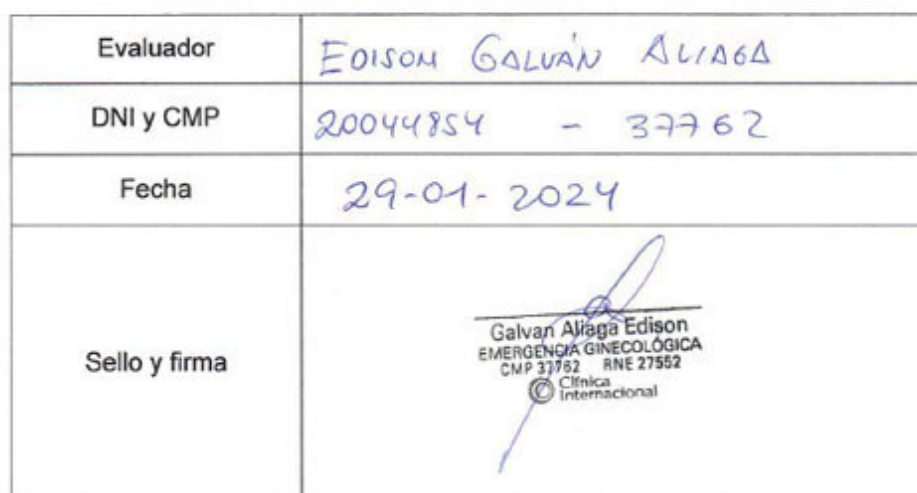 Evaluador EDISON GALVÁN ALIAGA
DNI y CMP 20044854 - 37762
Fecha 29-01-2024
Sello y firma
Galvan Aliaga Edison
EMERGENCIA GINECOLÓGICA
CMP 37762 RNE 27552
Clínica
Internacional